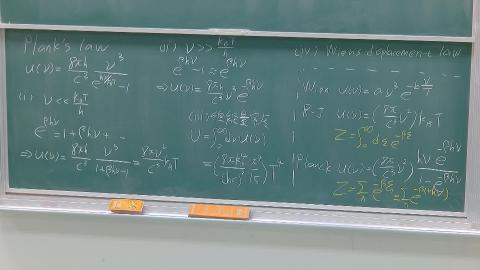 Plank's law
u(ν) = 8πh/c³ ν³/(e^{hν/k_BT}-1)
(i) ν << k_BT/h
e^{βhν} = 1+βhν+ - -
⇒ u(ν) = 8πh/c³ ν³/(1+βhν-1) = 8πν²/c³ k_BT
(ii) ν >> k_BT/h
e^{βhν} -1 ≈ e^{βhν}
⇒ u(ν) = 8πh/c³ ν³ e^{-βhν}
(iii)
U = ∫₀^∞ dν u(ν)
T⁴
(iv) Wien's displacement law
Wien u(ν) = a ν³ e^{-b ν/T}
R-J u(ν) = (8π/c³ ν²) k_BT
Z = ∫₀^∞ dε e^{-βε}
Planck u(ν) = (8π/c³ ν²) hν e^{-βhν}/(1-e^{-βhν})
Z = Σ_n e^{-βε} = Σ_n e^{-β(nhν)}